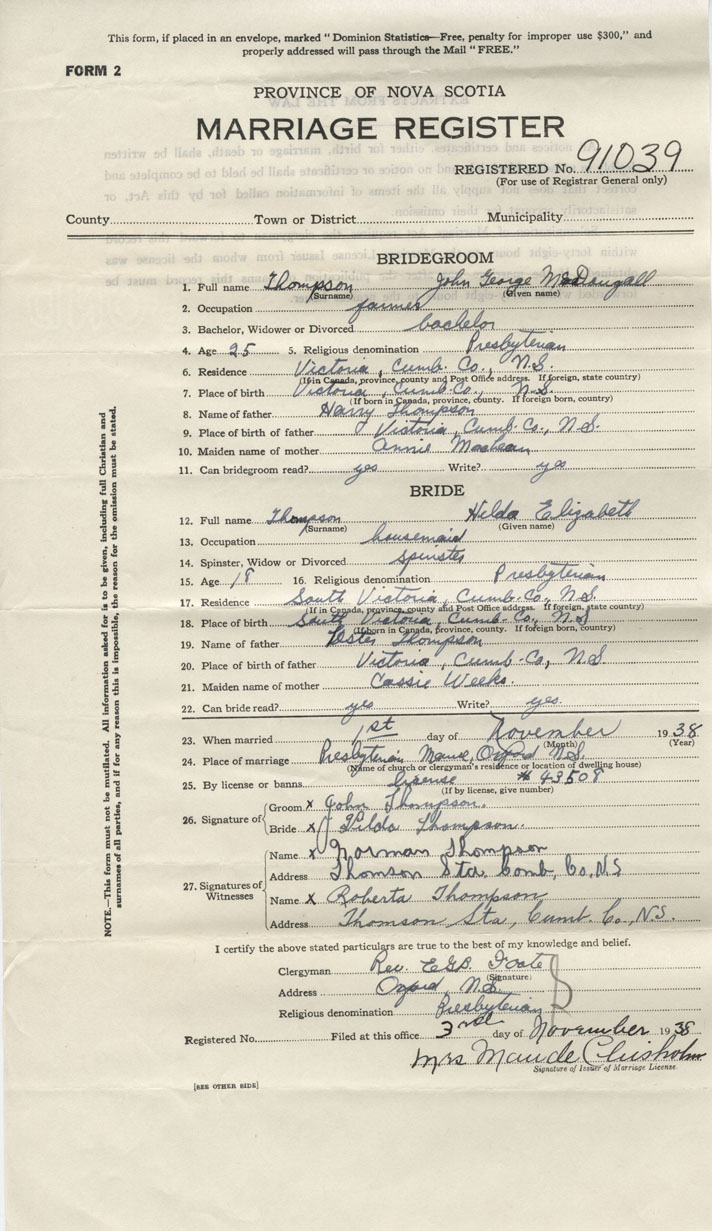 This form, if placed in an envelope, marked "Dominion Statistics—Free, penalty for improper use $300," and
properly addressed will pass through the Mail "FREE."
FORM 2
PROVINCE OF NOVA SCOTIA
MARRIAGE REGISTER
REGISTERED No. 91039
(For use of Registrar General only)
County Town or District Municipality
BRIDEGROOM
1. Full name Thompson John George McDougall
(Surname) (Given name)
2. Occupation farmer
3. Bachelor, Widower or Divorced bachelor
4. Age 25 5. Religious denomination Presbyterian
6. Residence Victoria, Cumb. Co., N.S.
(If in Canada, province, county and Post Office address. If foreign, state country)
7. Place of birth Victoria, Cumb. Co., N.S.
(If born in Canada, province, county. If foreign born, country)
8. Name of father Harry Thompson
9. Place of father Victoria, Cumb. Co., N.S.
10. Maiden name of mother Annie MacLean
11. Can bridegroom read? yes Write? yes
BRIDE
12. Full name Thompson Hilda Elizabeth
(Surname) (Given name)
13. Occupation housemaid
14. Spinster, Widow or Divorced spinster
15. Age 18 16. Religious denomination Presbyterian
17. Residence South Victoria, Cumb. Co., N.S
(If in Canada, province, county and Post Office address. If foreign, state country)
18. Place of birth South Victoria, Cumb. Co., N.S
(If born in Canada, province, county. If foreign born, country)
19. Name of father Thompson
20. Place of birth of father Victoria, Cumb. Co, N.S.
21. Maiden name of mother Cassie Weeks.
22. Can bride read? yes Write? yes.
23. When married 1st day of November 1938
(Month) (Year)
24. Place of marriage Presbyterian Manse, Oxford N.S.
(Name of church or clergyman's residence or location of dwelling house)
25. By license or banns license # 43508
(If by license, give number)
26. Signature of
Groom x John Thompson.
Bride x Hilda Thompson.
27. Signatures of Witnesses
Name x Norman Thompson
Address Thomson Sta. Comb. Co. N.S
Name x Roberta Thompson
Address Thomson Sta, Cumb. Co., N.S.
I certify the above stated particulars are true to the best of my knowledge and belief.
Clergyman Rev. E.G.B. Foote
(Signature)
Address Oxford, N.S.
Religious denomination Presbyterian
Registered No. Filed at this office 3rd day of November 1938
Mrs Maude Chisholm
Signature of Issuer of Marriage License
[SEE OTHER SIDE]
NOTE.—This form must not be mutilated. All information asked for is to be given, including full Christian and
surnames of all parties, and if for any reason this is impossible, the reason for the omission must be stated.